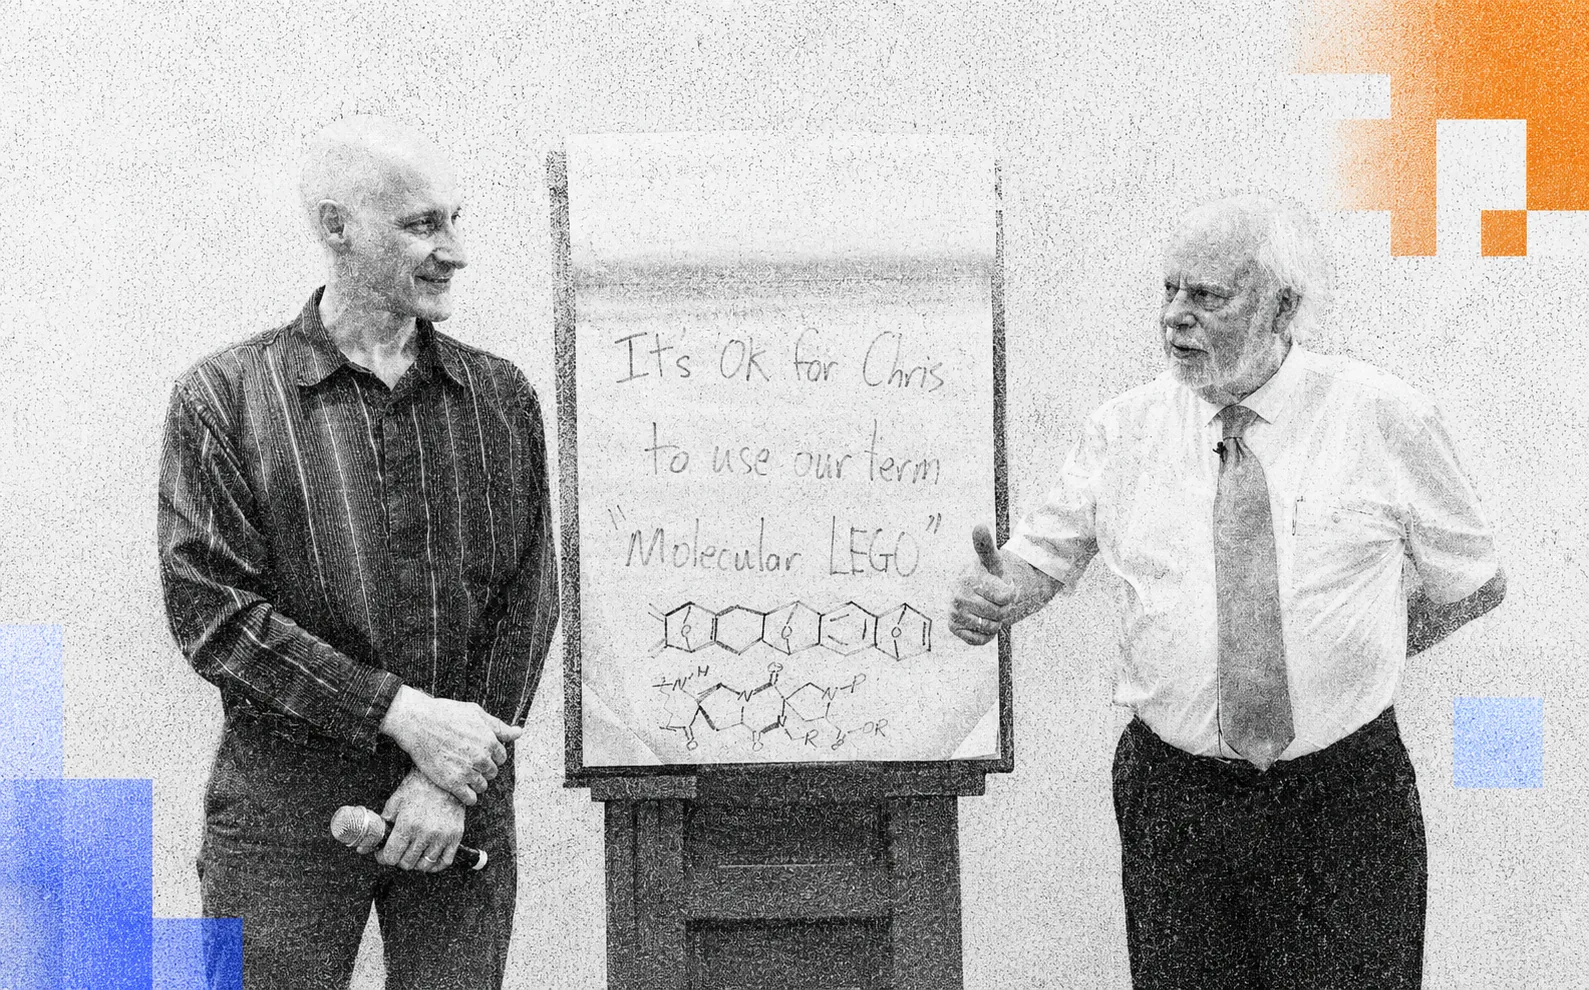 It's OK for Chris
to use our term
"Molecular LEGO"
O O O
N H O N P
N N
O O R O OR